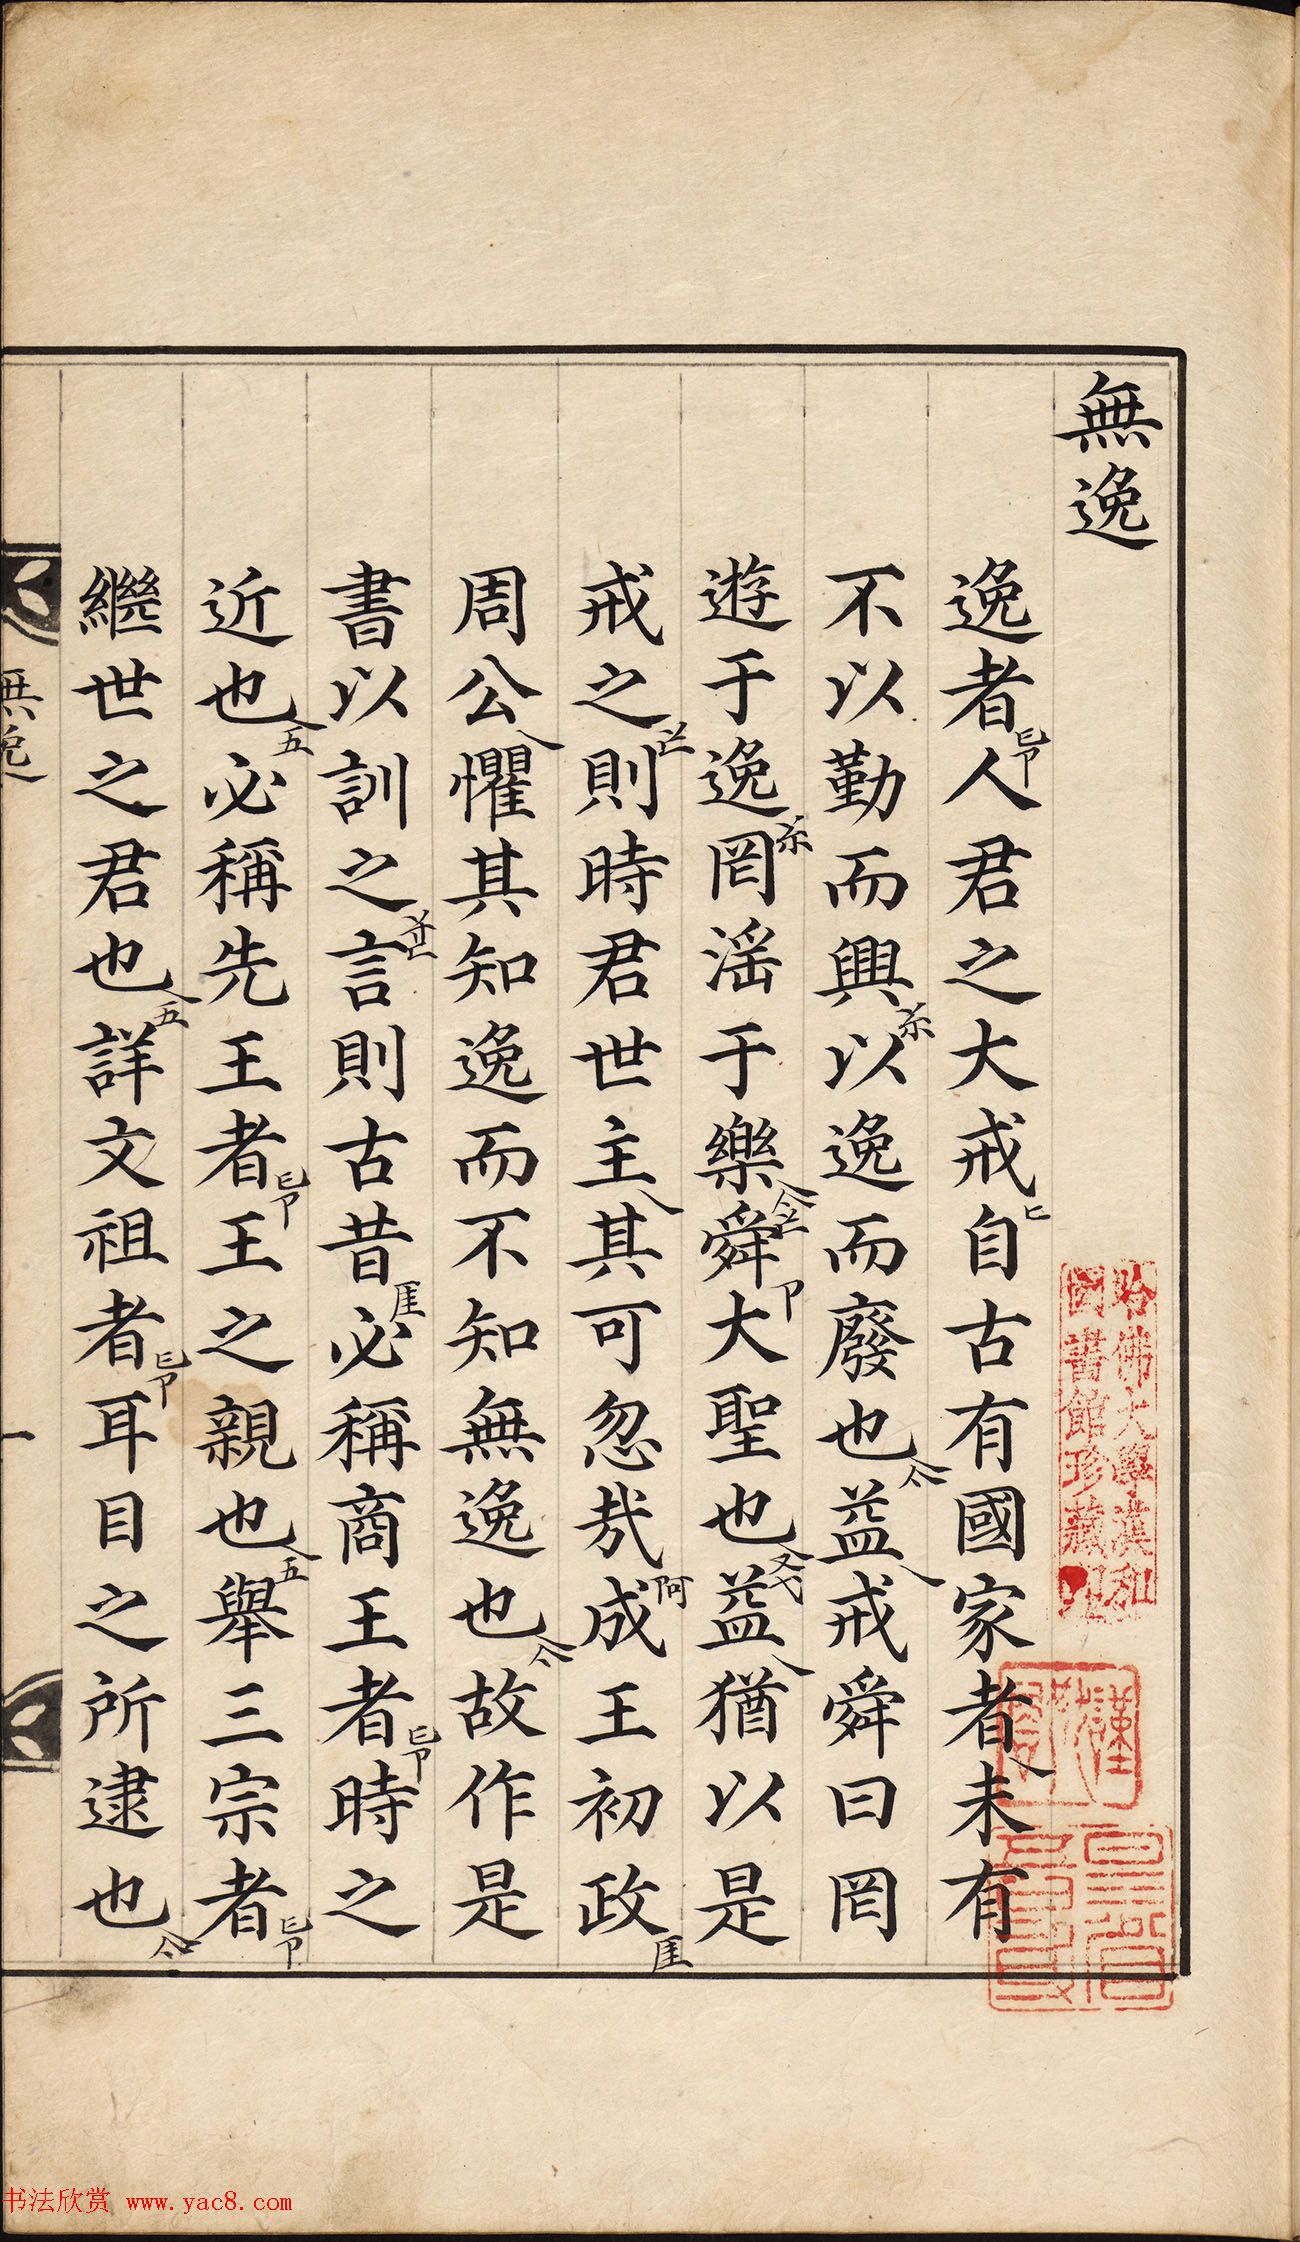 無逸
逸者人君之大戒自古有國家者未有
不以勤而興以逸而廢也益戒舜曰罔
遊于逸罔滛于樂舜大聖也益猶以是
戒之則時君世主其可忽㢤成王初政
周公懼其知逸而不知無逸也故作是
書以訓之言則古昔必稱商王者時之
近也必稱先王者王之親也舉三宗者
繼世之君也詳文祖者耳目之所逮也
無逸
一
哈佛大學漢和
圖書館珍藏印
书法欣赏 www.yac8.com